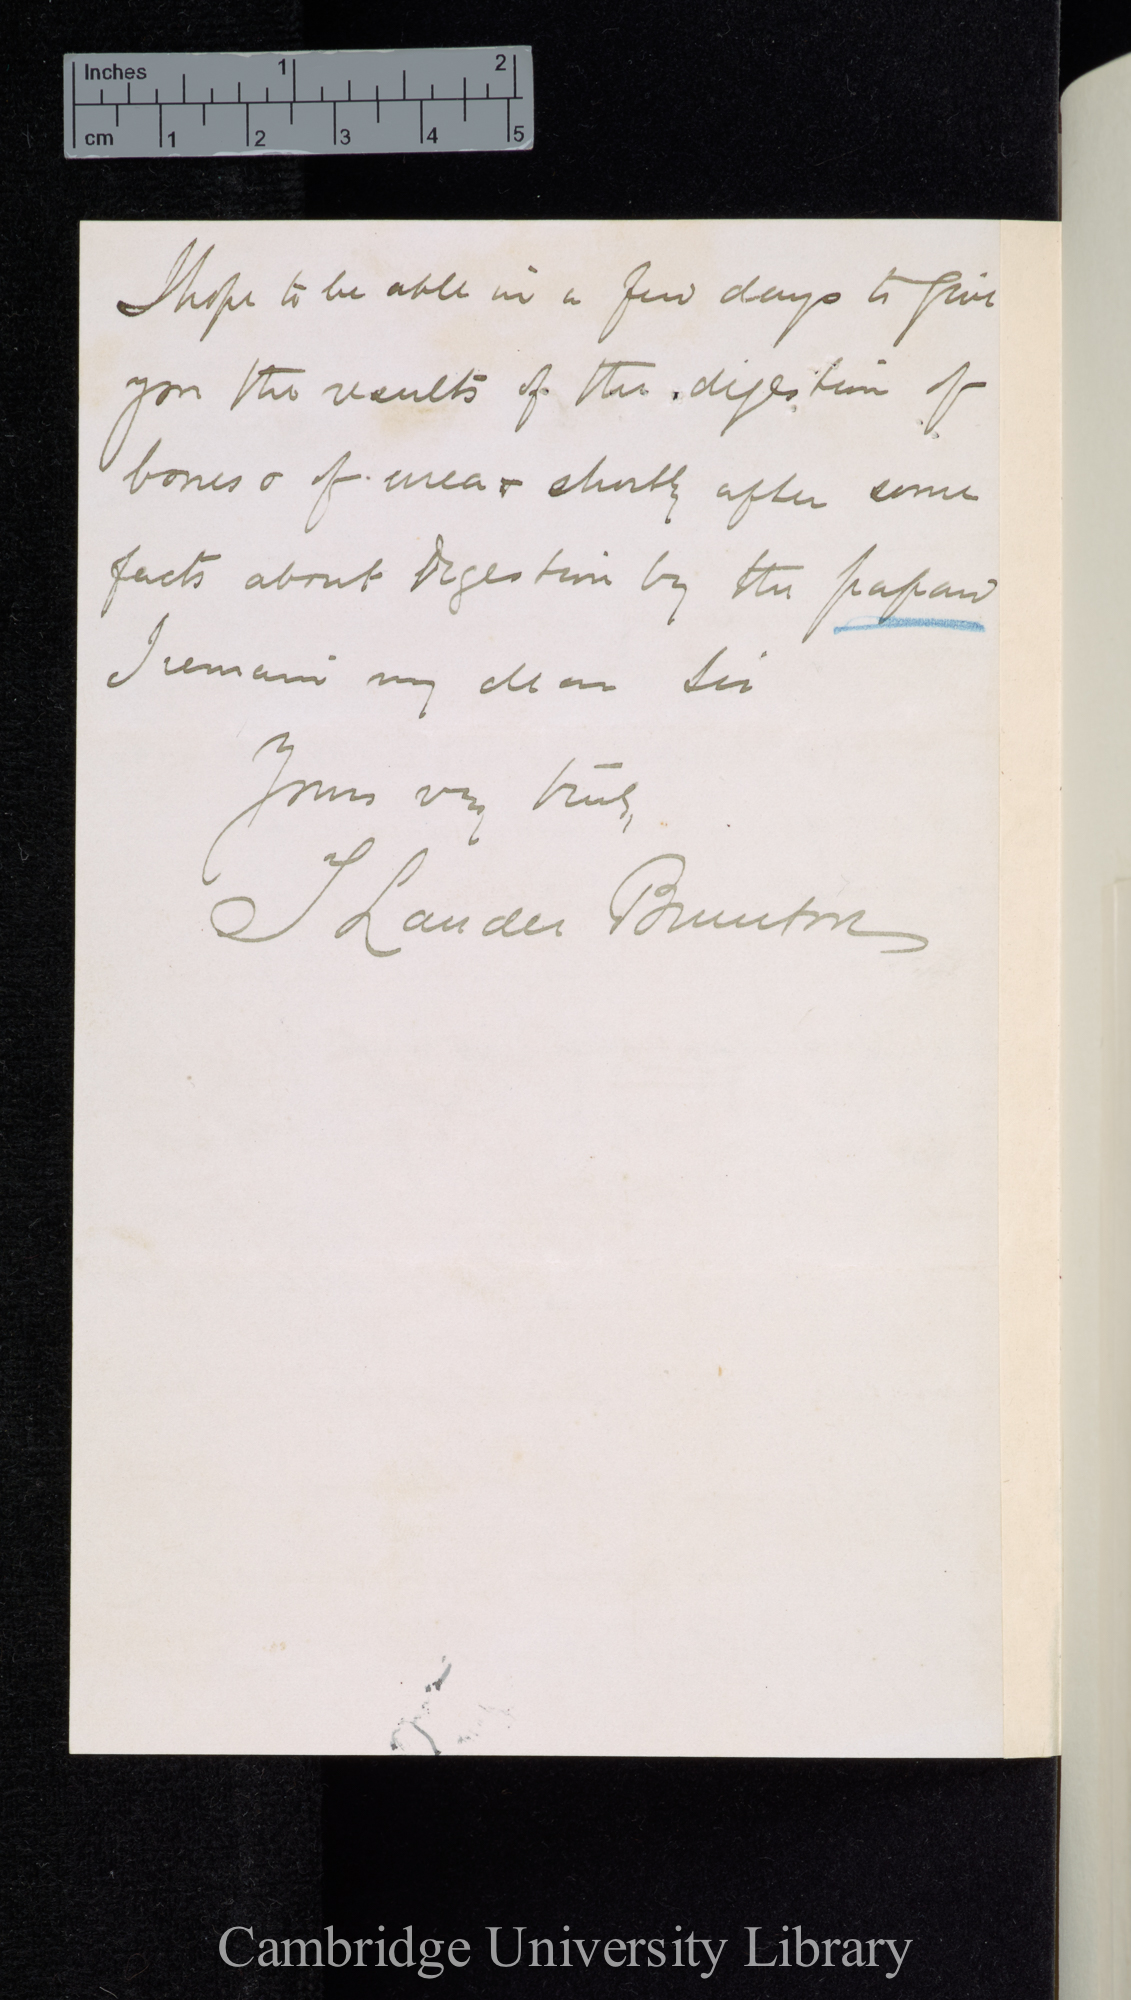 Inches 1 2
cm 1 2 3 4 5
I hope to be able in a few days to give
you the results of the digestion of
bones & of urea & shortly after some
facts about Digestion by the papaw
I remain my dear Sir
Yours very truly,
T Lauder Brunton
Cambridge University Library